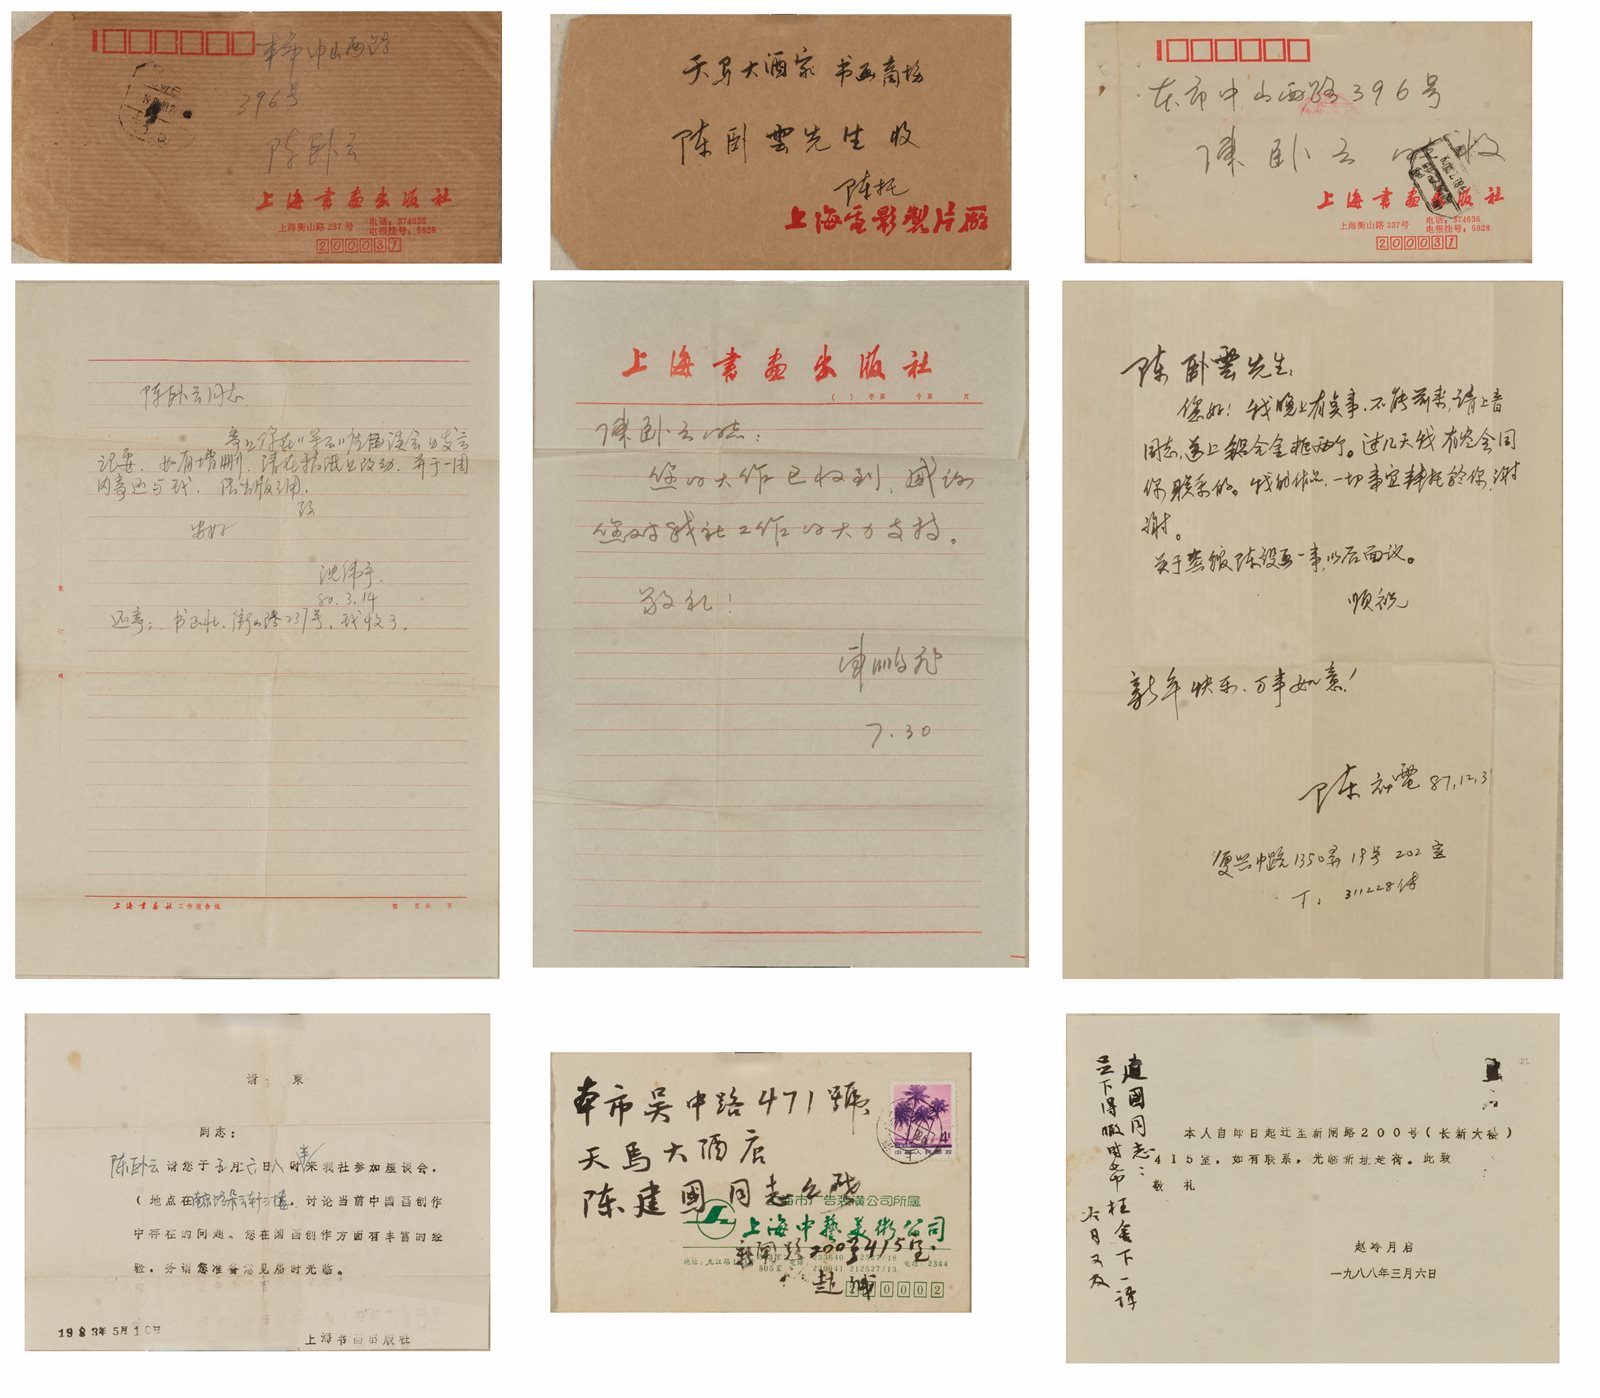 本市中山西路
396号
陈卧云
上海书画出版社
上海衡山路237号 电话:374636
电报挂号:5928
200031
天马大酒家 书画商场
陈卧雲先生 收
陈托
上海電影製片廠
本市中山西路396号
陈卧云 收
上海书画出版社
上海衡山路237号 电话:374636
电报挂号:5928
200031
陈卧云同志
寄上你在《朵云》座谈会上发言
记要,如有增删,请在稿纸上改动,并于一周
内寄还与我,
致
安好
80.3.14
还寄:书画社,衡山路237号,我收了.
上海书画社工作报告纸
第 页共 页
上海书画出版社
( ) 字第 号第 页
陈卧云同志:
您的大作已收到,感谢
您对我社工作的大力支持。
敬礼!
7.30
陈卧雲先生:
您好!我晚上有点事,不能前来,请上音
同志,送上铝合金框两个。过几天我有空会同
你联系的。我的作品,一切事宜拜托於你,谢
谢。
关于 陈设画一事,以后面议。
顺祝
新年快乐、万事如意!
陈 87,12,31
复兴中路1350弄19号 202室
T: 311228转
请 柬
同志:
陈卧云请您于五月六日八时来我社参加座谈会,
(地点在南京路朵云轩三楼,讨论当前中国画创作
中存在的问题。您在国画创作方面有丰富的经
验,务请您准备意见届时光临。
1983年5月10日
上海书画出版社
本市吴中路471號
天馬大酒店
陈建國同志台啟
上海市广告装潢公司所属
上海中藝美術公司
新闸路200号415室
赵缄
200002
4
中国人民邮政
建國同志:
足下得暇时希枉舍下一谭
本人自即日起迁至新闸路200号(长新大楼)
415室,如有联系,光临新址是荷。此致
敬 礼
赵冷月启
一九八八年三月六日